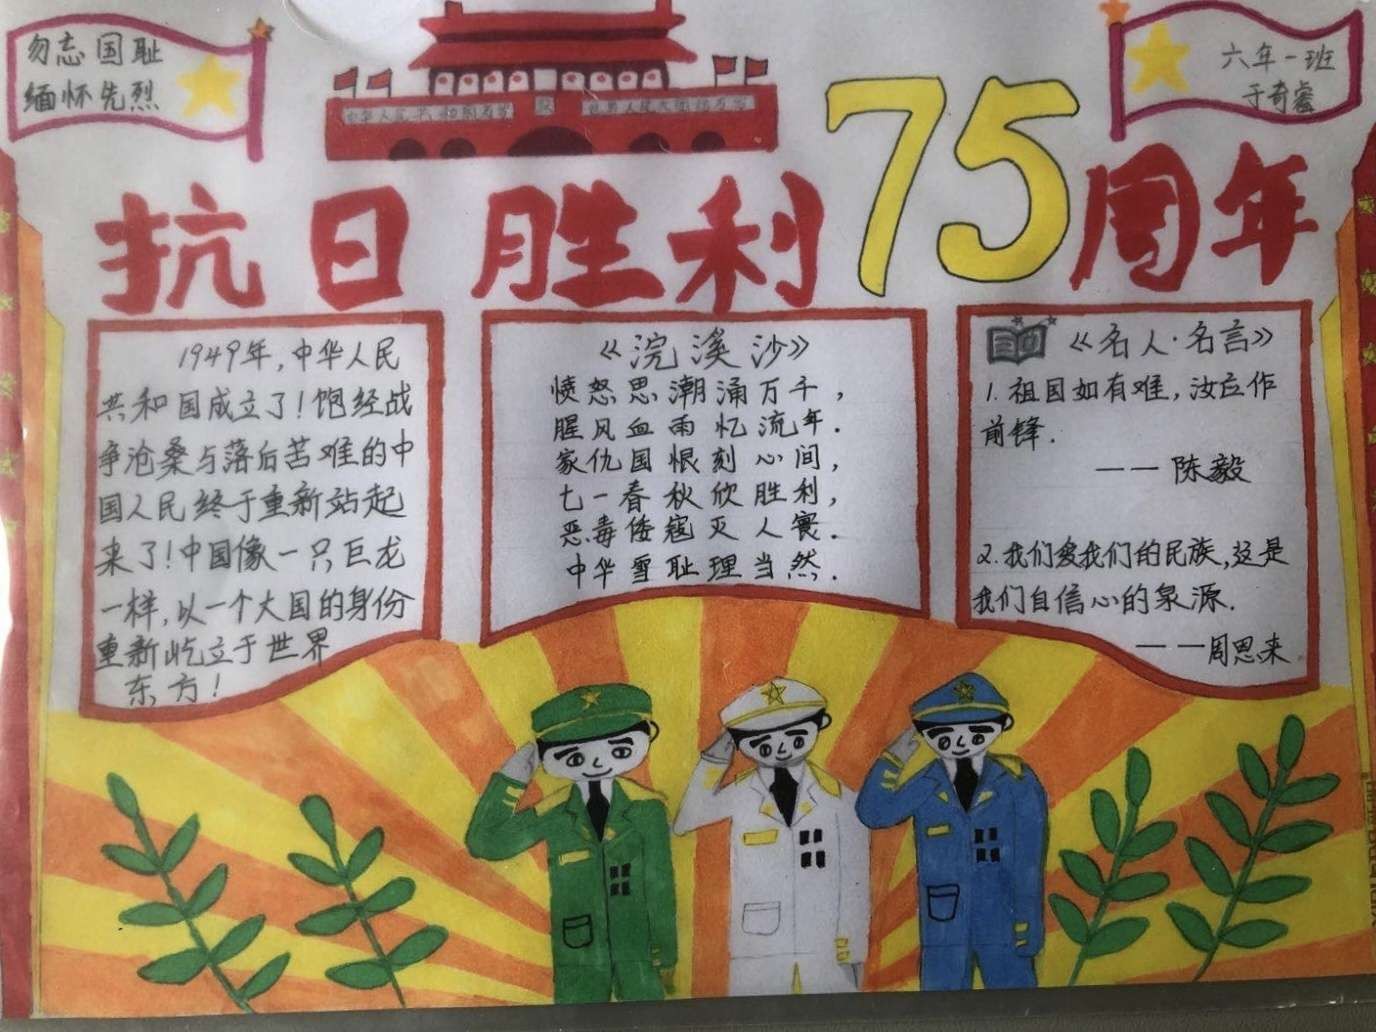 勿忘国耻
缅怀先烈
六年一班
于奇睿
抗日胜利75周年
1949年,中华人民
共和国成立了!饱经战
争沧桑与落后苦难的中
国人民终于重新站起
来了!中国像一只巨龙
一样,以一个大国的身份
重新屹立于世界
东方!
《浣溪沙》
愤怒思潮涌万千,
腥风血雨忆流年.
家仇国恨刻心间,
七一春秋欣胜利,
恶毒倭寇灭人寰.
中华雪耻理当然.
《名人·名言》
1.祖国如有难,汝应作
前锋.
——陈毅
2.我们爱我们的民族,这是
我们自信心的泉源.
——周恩来